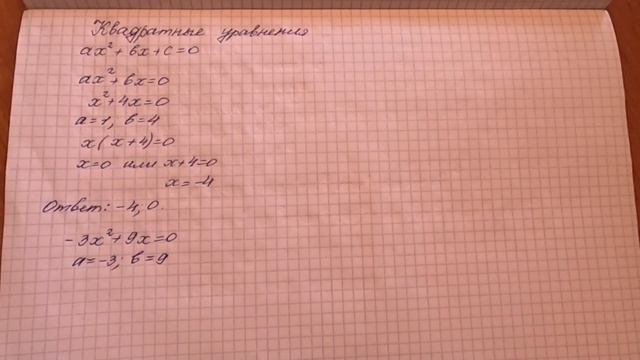 Квадратные уравнения
ax²+bx+c=0
ax²+bx=0
x²+4x=0
a=1, b=4
x(x+4)=0
x=0 или x+4=0
x=-4
Ответ: -4; 0.
-3x²+9x=0
a=-3; b=9